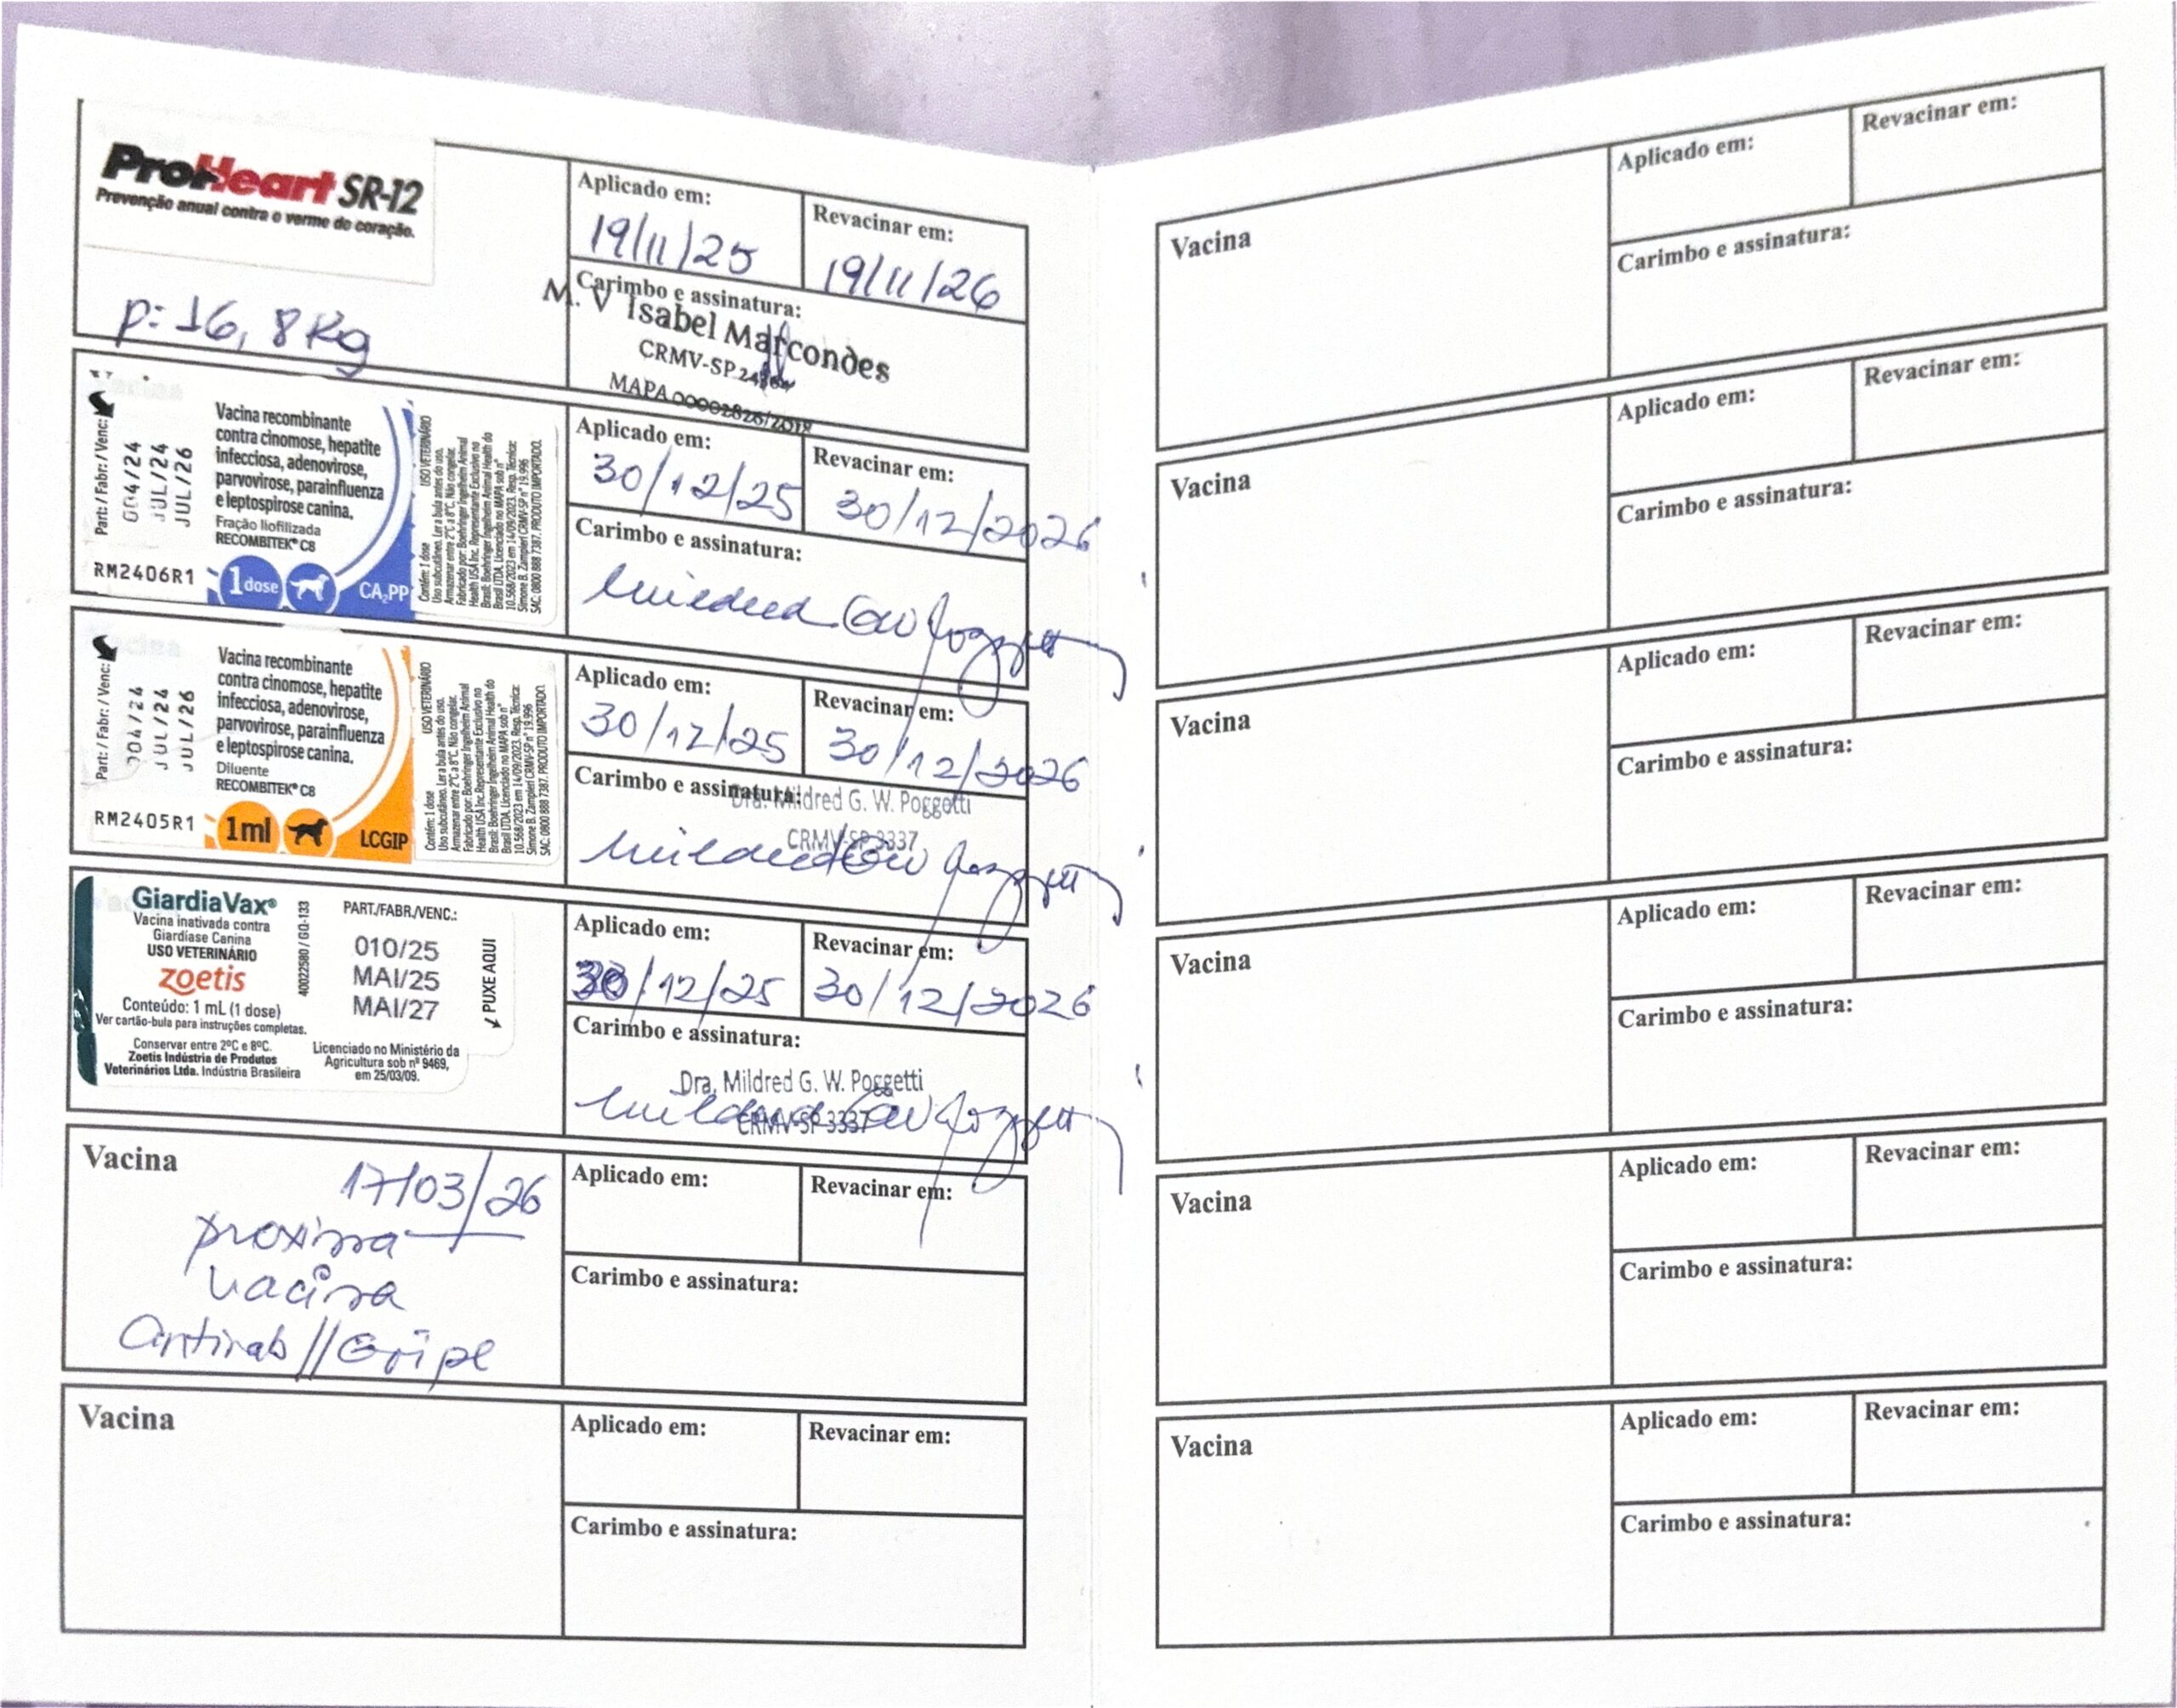 ProHeart SR-12
Prevenção anual contra o verme do coração.
p: 16,8 Kg
Aplicado em:
19/11/25
Revacinar em:
19/11/26
Carimbo e assinatura:
M. V Isabel Marcondes
CRMV-SP
MAPA 00002826/2018
Part: / Fabr: / Venc:
004/24
JUL/24
JUL/26
RM2406R1
Vacina recombinante
contra cinomose, hepatite
infecciosa, adenovirose,
parvovirose, parainfluenza
e leptospirose canina.
Fração liofilizada
RECOMBITEK® C8
1 dose
CA₂PP
Contém: 1 dose USO VETERINÁRIO
Uso subcutâneo. Ler a bula antes do uso.
Armazenar entre 2°C a 8°C. Não congelar.
Fabricado por: Boehringer Ingelheim Animal
Health USA Inc. Representante Exclusivo no
Brasil: Boehringer Ingelheim Animal Health do
Brasil LTDA. Licenciado no MAPA sob nº
10.568/2023 em 14/09/2023. Resp. Técnica:
Simone B. Zampieri CRMV-SP nº 19.996
SAC: 0800 888 7387. PRODUTO IMPORTADO.
Aplicado em:
30/12/25
Revacinar em:
30/12/2026
Carimbo e assinatura:
Part: / Fabr: / Venc:
004/24
JUL/24
JUL/26
RM2405R1
Vacina recombinante
contra cinomose, hepatite
infecciosa, adenovirose,
parvovirose, parainfluenza
e leptospirose canina.
Diluente
RECOMBITEK® C8
1ml
LCGIP
Contém: 1 dose USO VETERINÁRIO
Uso subcutâneo. Ler a bula antes do uso.
Armazenar entre 2°C a 8°C. Não congelar.
Fabricado por: Boehringer Ingelheim Animal
Health USA Inc. Representante Exclusivo no
Brasil: Boehringer Ingelheim Animal Health do
Brasil LTDA. Licenciado no MAPA sob nº
10.568/2023 em 14/09/2023. Resp. Técnica:
Simone B. Zampieri CRMV-SP nº 19.996
SAC: 0800 888 7387. PRODUTO IMPORTADO.
Aplicado em:
30/12/25
Revacinar em:
30/12/2026
Carimbo e assinatura:
Dra. Mildred G. W. Poggetti
CRMV-SP 3337
GiardiaVax®
Vacina inativada contra
Giardíase Canina
USO VETERINÁRIO
zoetis
Conteúdo: 1 mL (1 dose)
Ver cartão-bula para instruções completas.
Conservar entre 2ºC e 8ºC.
Zoetis Indústria de Produtos
Veterinários Ltda. Indústria Brasileira
40022580 / GO-133
PART./FABR./VENC.:
010/25
MAI/25
MAI/27
PUXE AQUI
Licenciado no Ministério da
Agricultura sob nº 9469,
em 25/03/09.
Aplicado em:
30/12/25
Revacinar em:
30/12/2026
Carimbo e assinatura:
Dra. Mildred G. W. Poggetti
CRMV-SP 3337
Vacina
17/03/26
proxima
vacina
Antirab//Gripe
Aplicado em:
Revacinar em:
Carimbo e assinatura:
Vacina
Aplicado em:
Revacinar em:
Carimbo e assinatura:
Vacina
Aplicado em:
Revacinar em:
Carimbo e assinatura:
Vacina
Aplicado em:
Revacinar em:
Carimbo e assinatura:
Vacina
Aplicado em:
Revacinar em:
Carimbo e assinatura:
Vacina
Aplicado em:
Revacinar em:
Carimbo e assinatura:
Vacina
Aplicado em:
Revacinar em:
Carimbo e assinatura:
Vacina
Aplicado em:
Revacinar em:
Carimbo e assinatura: